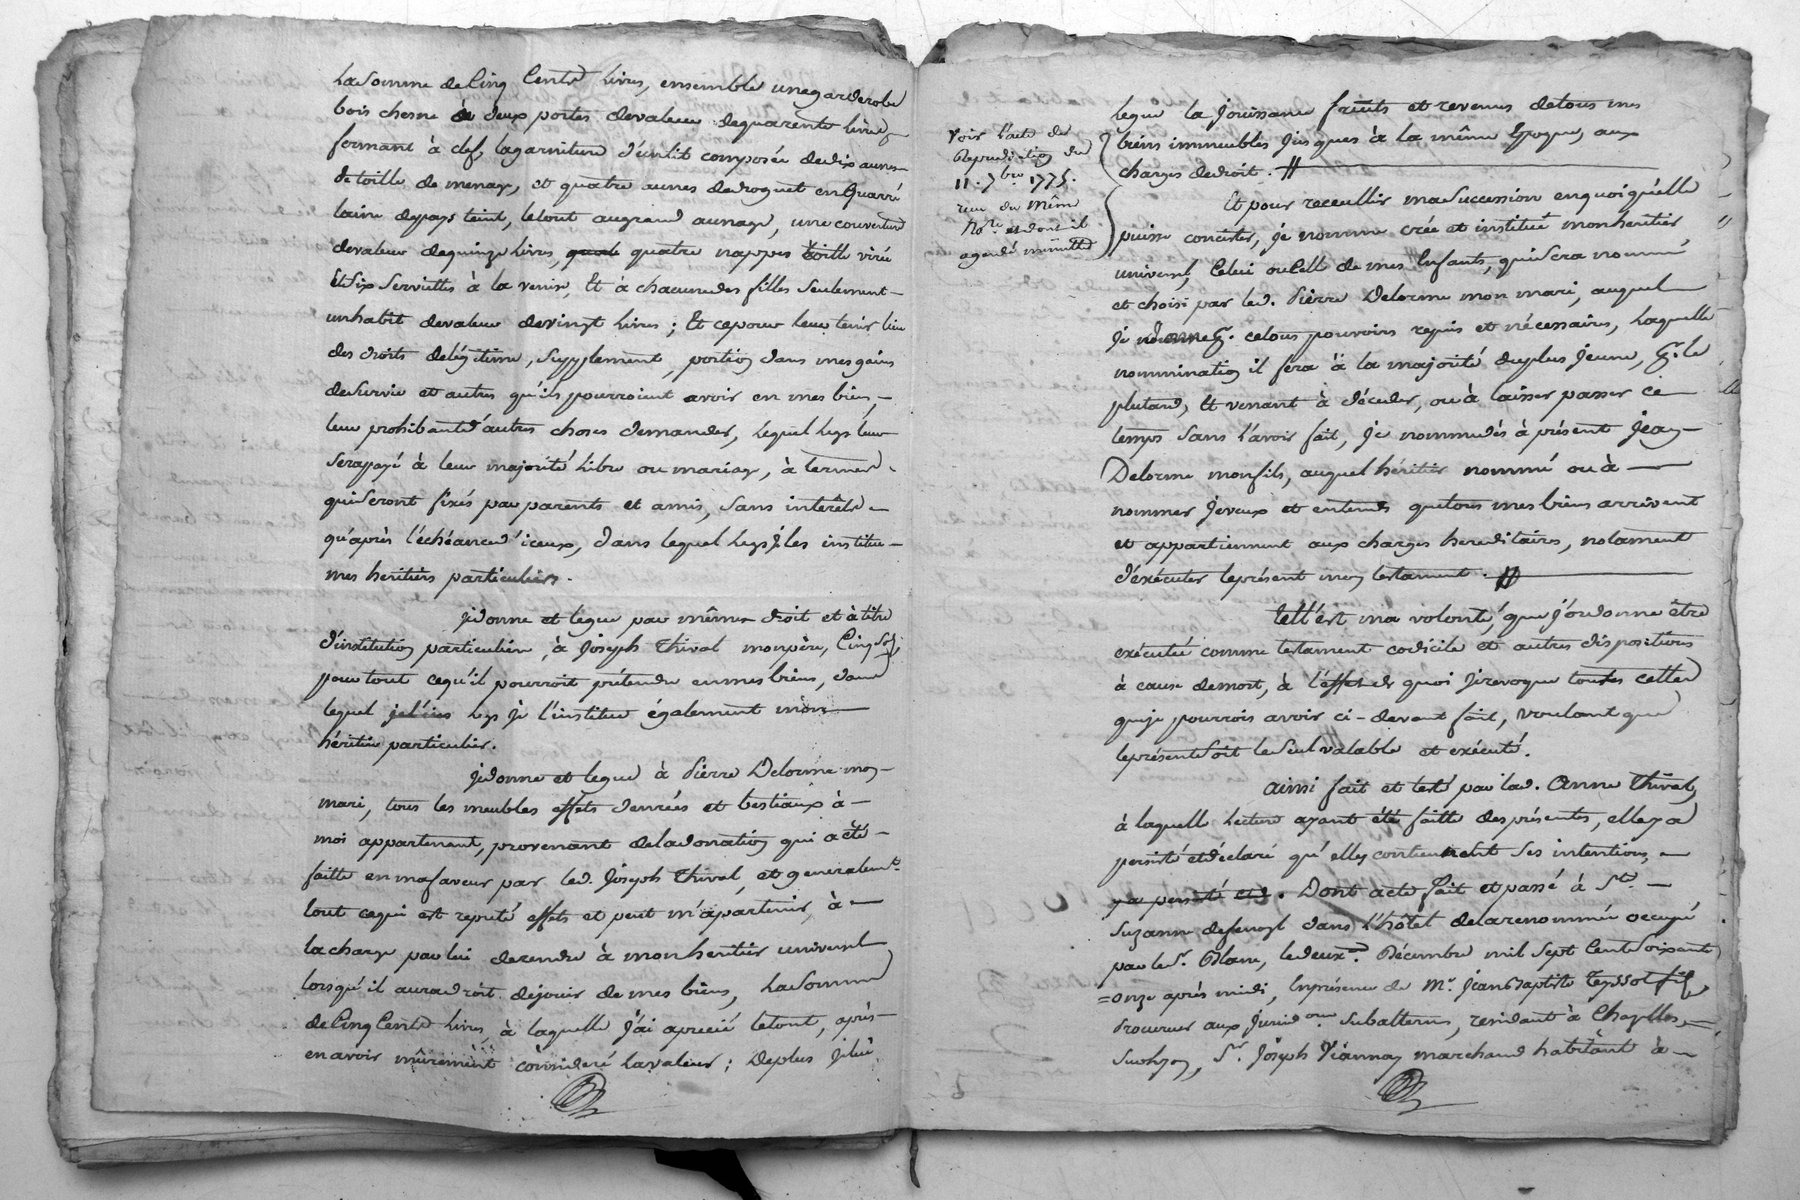 la somme de Cinq Cents livres, ensemble unegarderobe
bois chesne à deux portes devaleur dequarente livres
fermant à clef, lagarniture d'unlit composée dedix aunes
detoille de menage, et quatre aunes dedroguet enquarré
laine depays teint, letout augrand aunage, une couverture
devaleur dequinze livres, quatre nappes toille viré
Etdix serviettes à la venise, Et a chacunedes filles seulement
unhabit devaleur devingt livres ; Et cepour leur tenir lieu
des droits delégitime, supplement, portion dans mes gains
desurvie et autres qu'ils pourroient avoir en mes biens,
leur prohibantd'autres choses demander, lequel legs leur
serapayé à leur majorité libre ou mariage, à termes
quiseront fixés par parents et amis, sans interêts
qu'après l'échéanced'iceux, dans lequel legs je les institue
mes heritiers particuliers.
jedonne et legue par même droit et à titre
d'institution particuliere, à Joseph Thival monpère, Cinq sols
pour tout cequ'il pourroit prétendre enmes biens, dans
lequel legs je l'institue également mon
héritier particulier.
jedonne et legue à Pierre Delorme mon
mari, tous les meubles effets denrées et bestiaux à
moi appartenant, provenant deladonation qui a été
faitte enmafaveur par led. Joseph Thival, et generalemt.
tout cequi est reputé effets et peut m'apartenir, à
la charge par lui derendre à monheritier universel
lorsqu'il auradroit déjouir de mes biens, lasomme
deCinqCents livres, à laquelle j'ai aprecié letout, après
enavoir mûrement consideré lavaleur ; Deplus jelui
Voir l'acte de
Repudiation du
11. 7bre 1775.
recu du même
Nore. et dont il
agardé minutte
legue la jouissance fruits et revenus detous mes
biens immeubles jusques à la même Epoque, aux
charges dedroit. //
Et pour receullir masuccession enquoiqu'elle
puisse consister, je nomme crée et institue monheritier
universel, Celui ouCelle de mes Enfants, quisera nommé
et choisi par led. Pierre Delorme mon mari, auquel
je donne tous pouvoirs requis et nécessaires, laquelle
nommination il fera à la majorité duplus jeune, le
plutard, Et venant à décéder, ou à laisser passer ce
temps sans l'avoir fait, je nommedès à présent Jean
Delorme monfils, auquel héritier nommé ou à
nommer jeveux et entends quetous mes biens arrivent
et appartiennent aux charges hereditaires, notament
d'exécuter leprésent mon testament. //
tell'est ma volonté, que j'ordonne être
exécutée comme testament codicile et autres dispositions
à cause demort, à l'effet de quoi jerevoque toutes celles
queje pourrois avoir ci-devant fait, voulant que
leprésentsoit leseul valable et exécuté.
ainsi fait et testé par lad. Anne Thival,
à laquelle lecture ayant été faitte desprésentes, elleya
persisté etdéclaré qu'elles contiennent ses intentions,
ya persisté et d. Dont acte fait et passé à St.
Suzanne dans l'hôtel delarenommée occupé
par le Sr. Blanc, ledeuxe. Décembre mil sept Centsoixante
=onze après midi, Enprésence de Mr. jeanBaptiste Teyssot fils,
Procureur aux jurid.ons subalternes, residant à Chazelles,
Sr. Joseph Viannay marchand habitant à